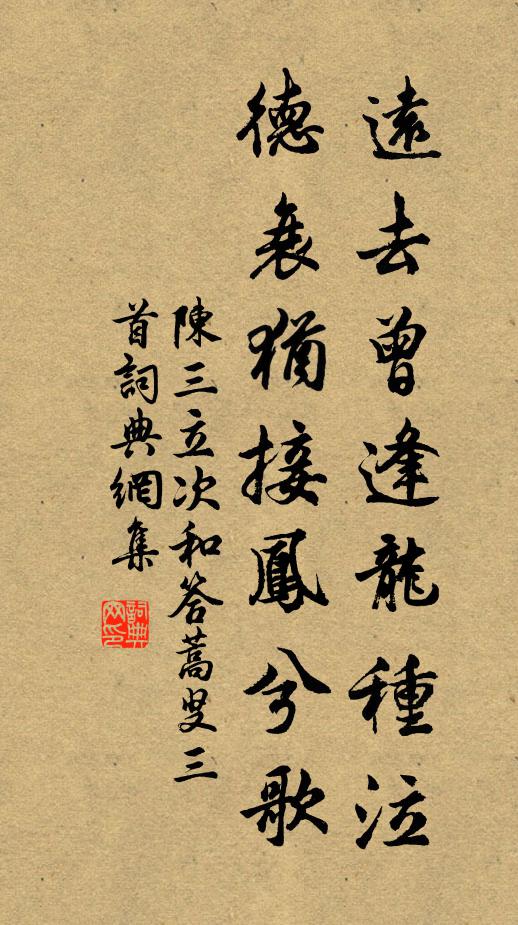 遠去曾逢龍種泣
德衰猶接鳳兮歌
陳三立次和答蒿叟三
首詞典網集
詞典
网印